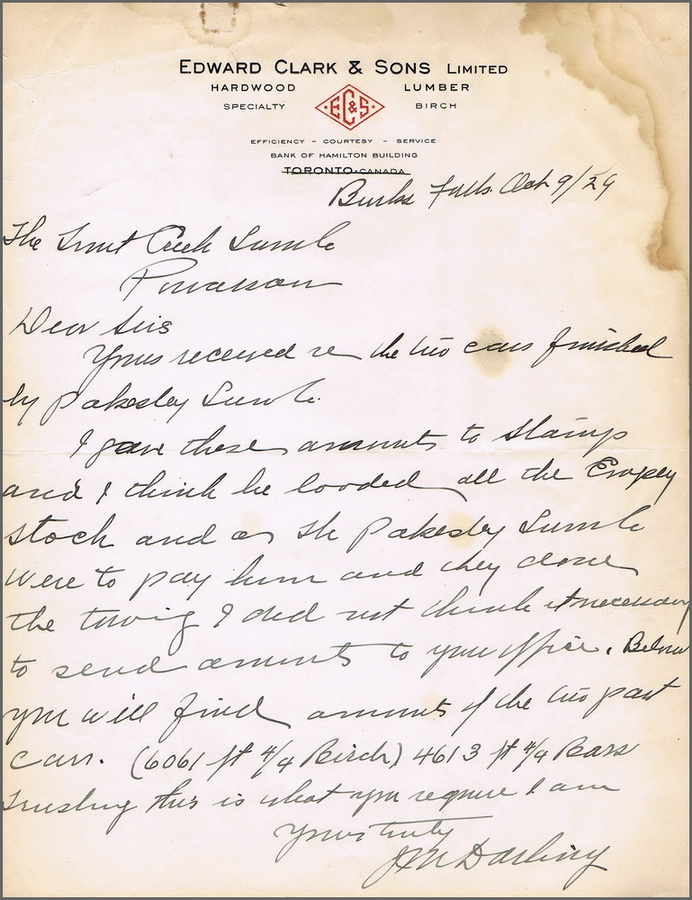 EDWARD CLARK & SONS LIMITED
HARDWOOD LUMBER
SPECIALTY EC&S BIRCH
EFFICIENCY - COURTESY - SERVICE
BANK OF HAMILTON BUILDING
TORONTO-CANADA
Burks Falls Oct 9/29
The Trout Creek Lumb Co
Powassan
Dear Sirs
Yours received re the two cars finished
by Pakesley Lumb Co.
I gave these amounts to Stamp
and I think he loaded all the
stock and as the Pakesley Lumb Co
were to pay him and they done
the towing I did not think it necessary
to send amounts to your office. Below
you will find amounts of the two part
cars. (6061 ft 4/4 Birch) 4613 ft 4/4 Bass
Trusting this is what you require I am
yours truly
Darling